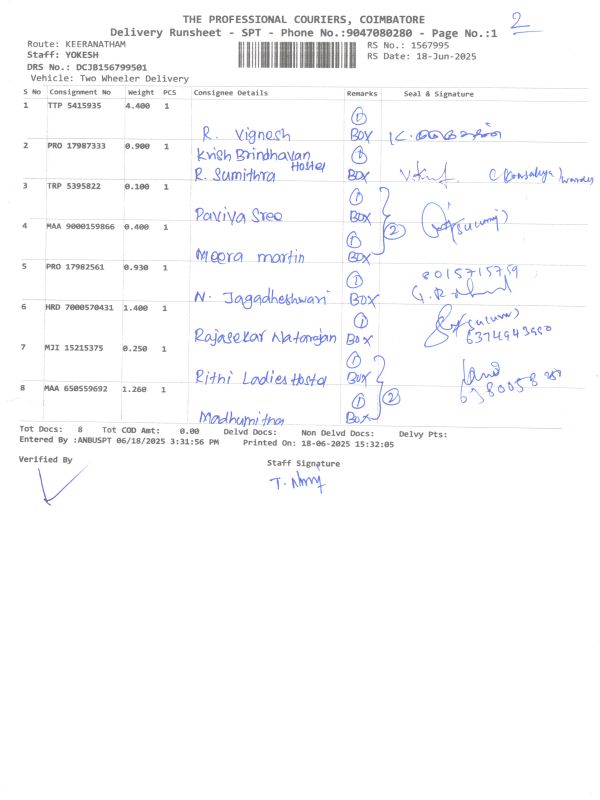 THE PROFESSIONAL COURIERS, COIMBATORE
2
Delivery Runsheet - SPT - Phone No.:9047080280 - Page No.:1
Route: KEERANATHAM
RS No.: 1567995
Staff: YOKESH
RS Date: 18-Jun-2025
DRS No.: DCJB156799501
Vehicle: Two Wheeler Delivery
S No Consignment No Weight PCS Consignee Details Remarks Seal & Signature
1 TTP 5415935 4.400 1 ①
R. Vignesh BOX
2 PRO 17987333 0.900 1 Krish Brindhavan Hostel ①
R. Sumithra BOX
3 TRP 5395822 0.100 1 ①
Paviya Sree BOX
②
4 MAA 9000159866 0.400 1 ①
Meera martin BOX
5 PRO 17982561 0.930 1 ① 8015715759
N. Jagadheshwari BOX
6 HRD 7000570431 1.400 1 ①
Rajasekar Natarajan BOX 6374943990
7 MJI 15215375 0.250 1 ①
Rithi Ladies Hostel BOX
②
8 MAA 650559692 1.260 1 ①
Madhumitha BOX
Tot Docs: 8 Tot COD Amt: 0.00 Delvd Docs: Non Delvd Docs: Delvy Pts:
Entered By :ANBUSPT 06/18/2025 3:31:56 PM Printed On: 18-06-2025 15:32:05
Verified By
Staff Signature